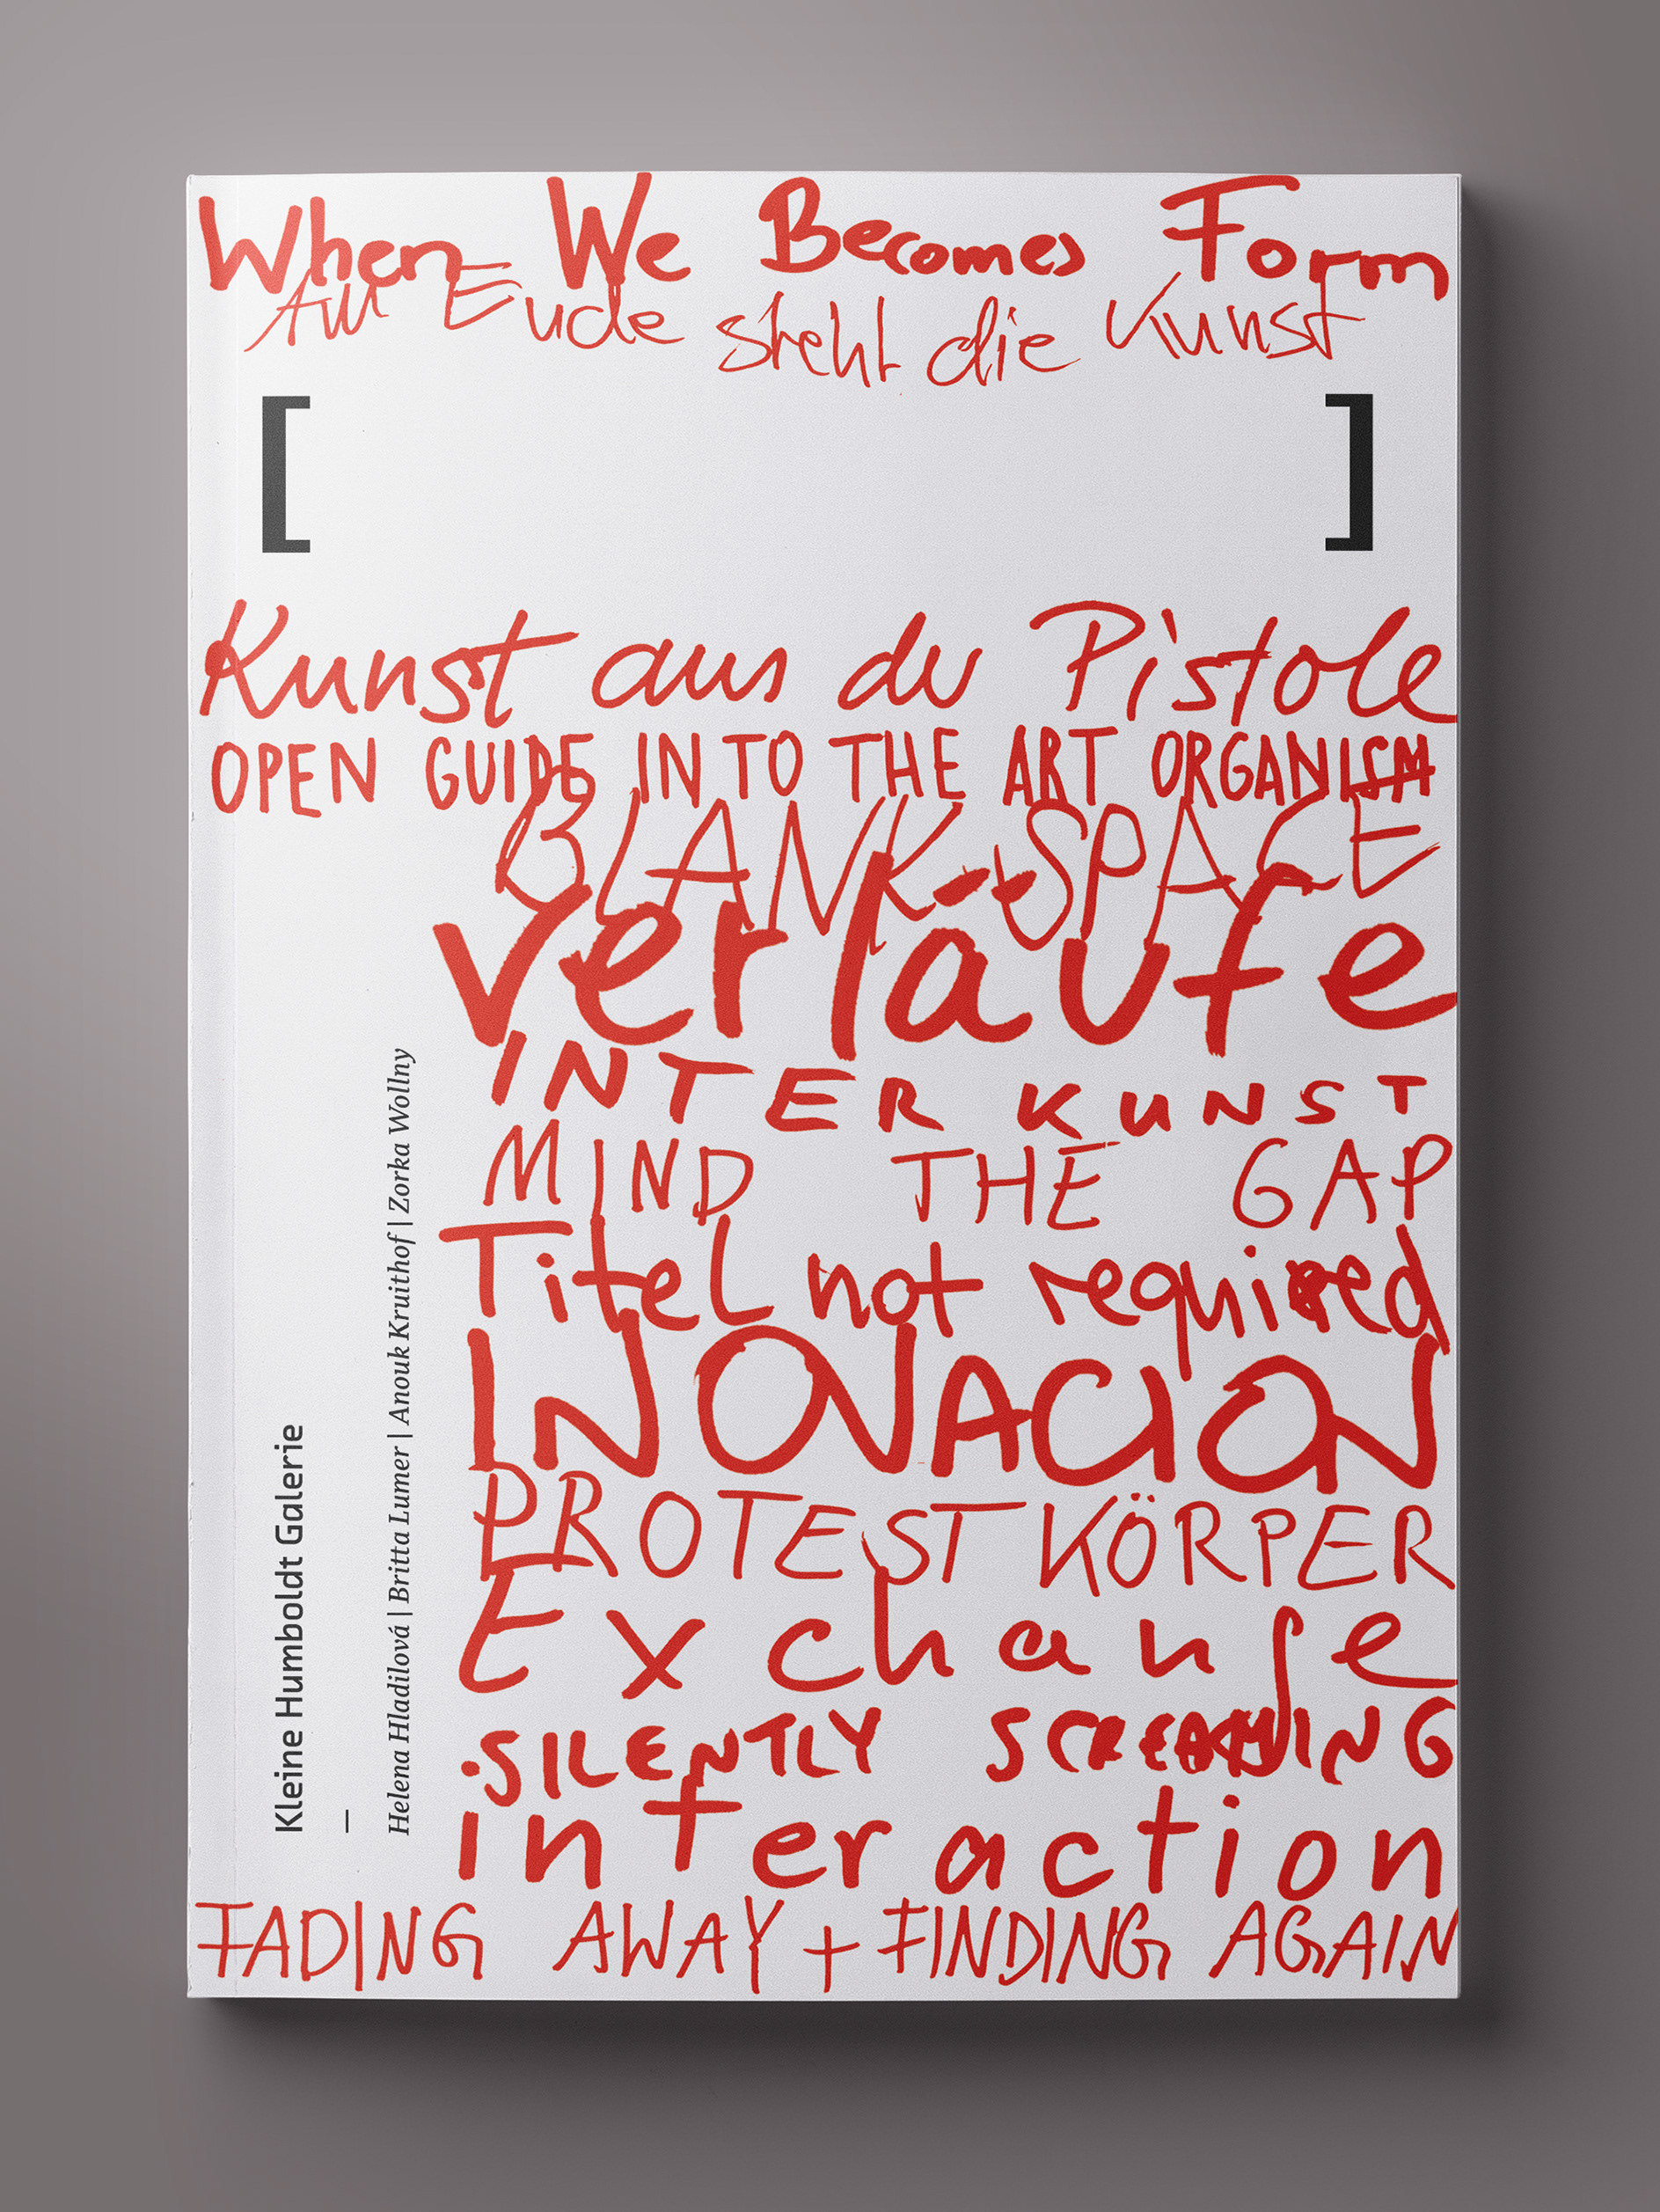 When We Becomes Form
Am Ende steht die Kunst
[ ]
Kunst aus der Pistole
OPEN GUIDE INTO THE ART ORGANISM
BLANK SPACE
verläufe
INTER KUNST
MIND THE GAP
Titel not required
INOVACION
PROTEST KÖRPER
Exchange
SILENTLY SCREAMING
interaction
FADING AWAY + FINDING AGAIN
Kleine Humboldt Galerie
—
Helena Hladilová | Britta Lumer | Anouk Kruithof | Zorka Wollny